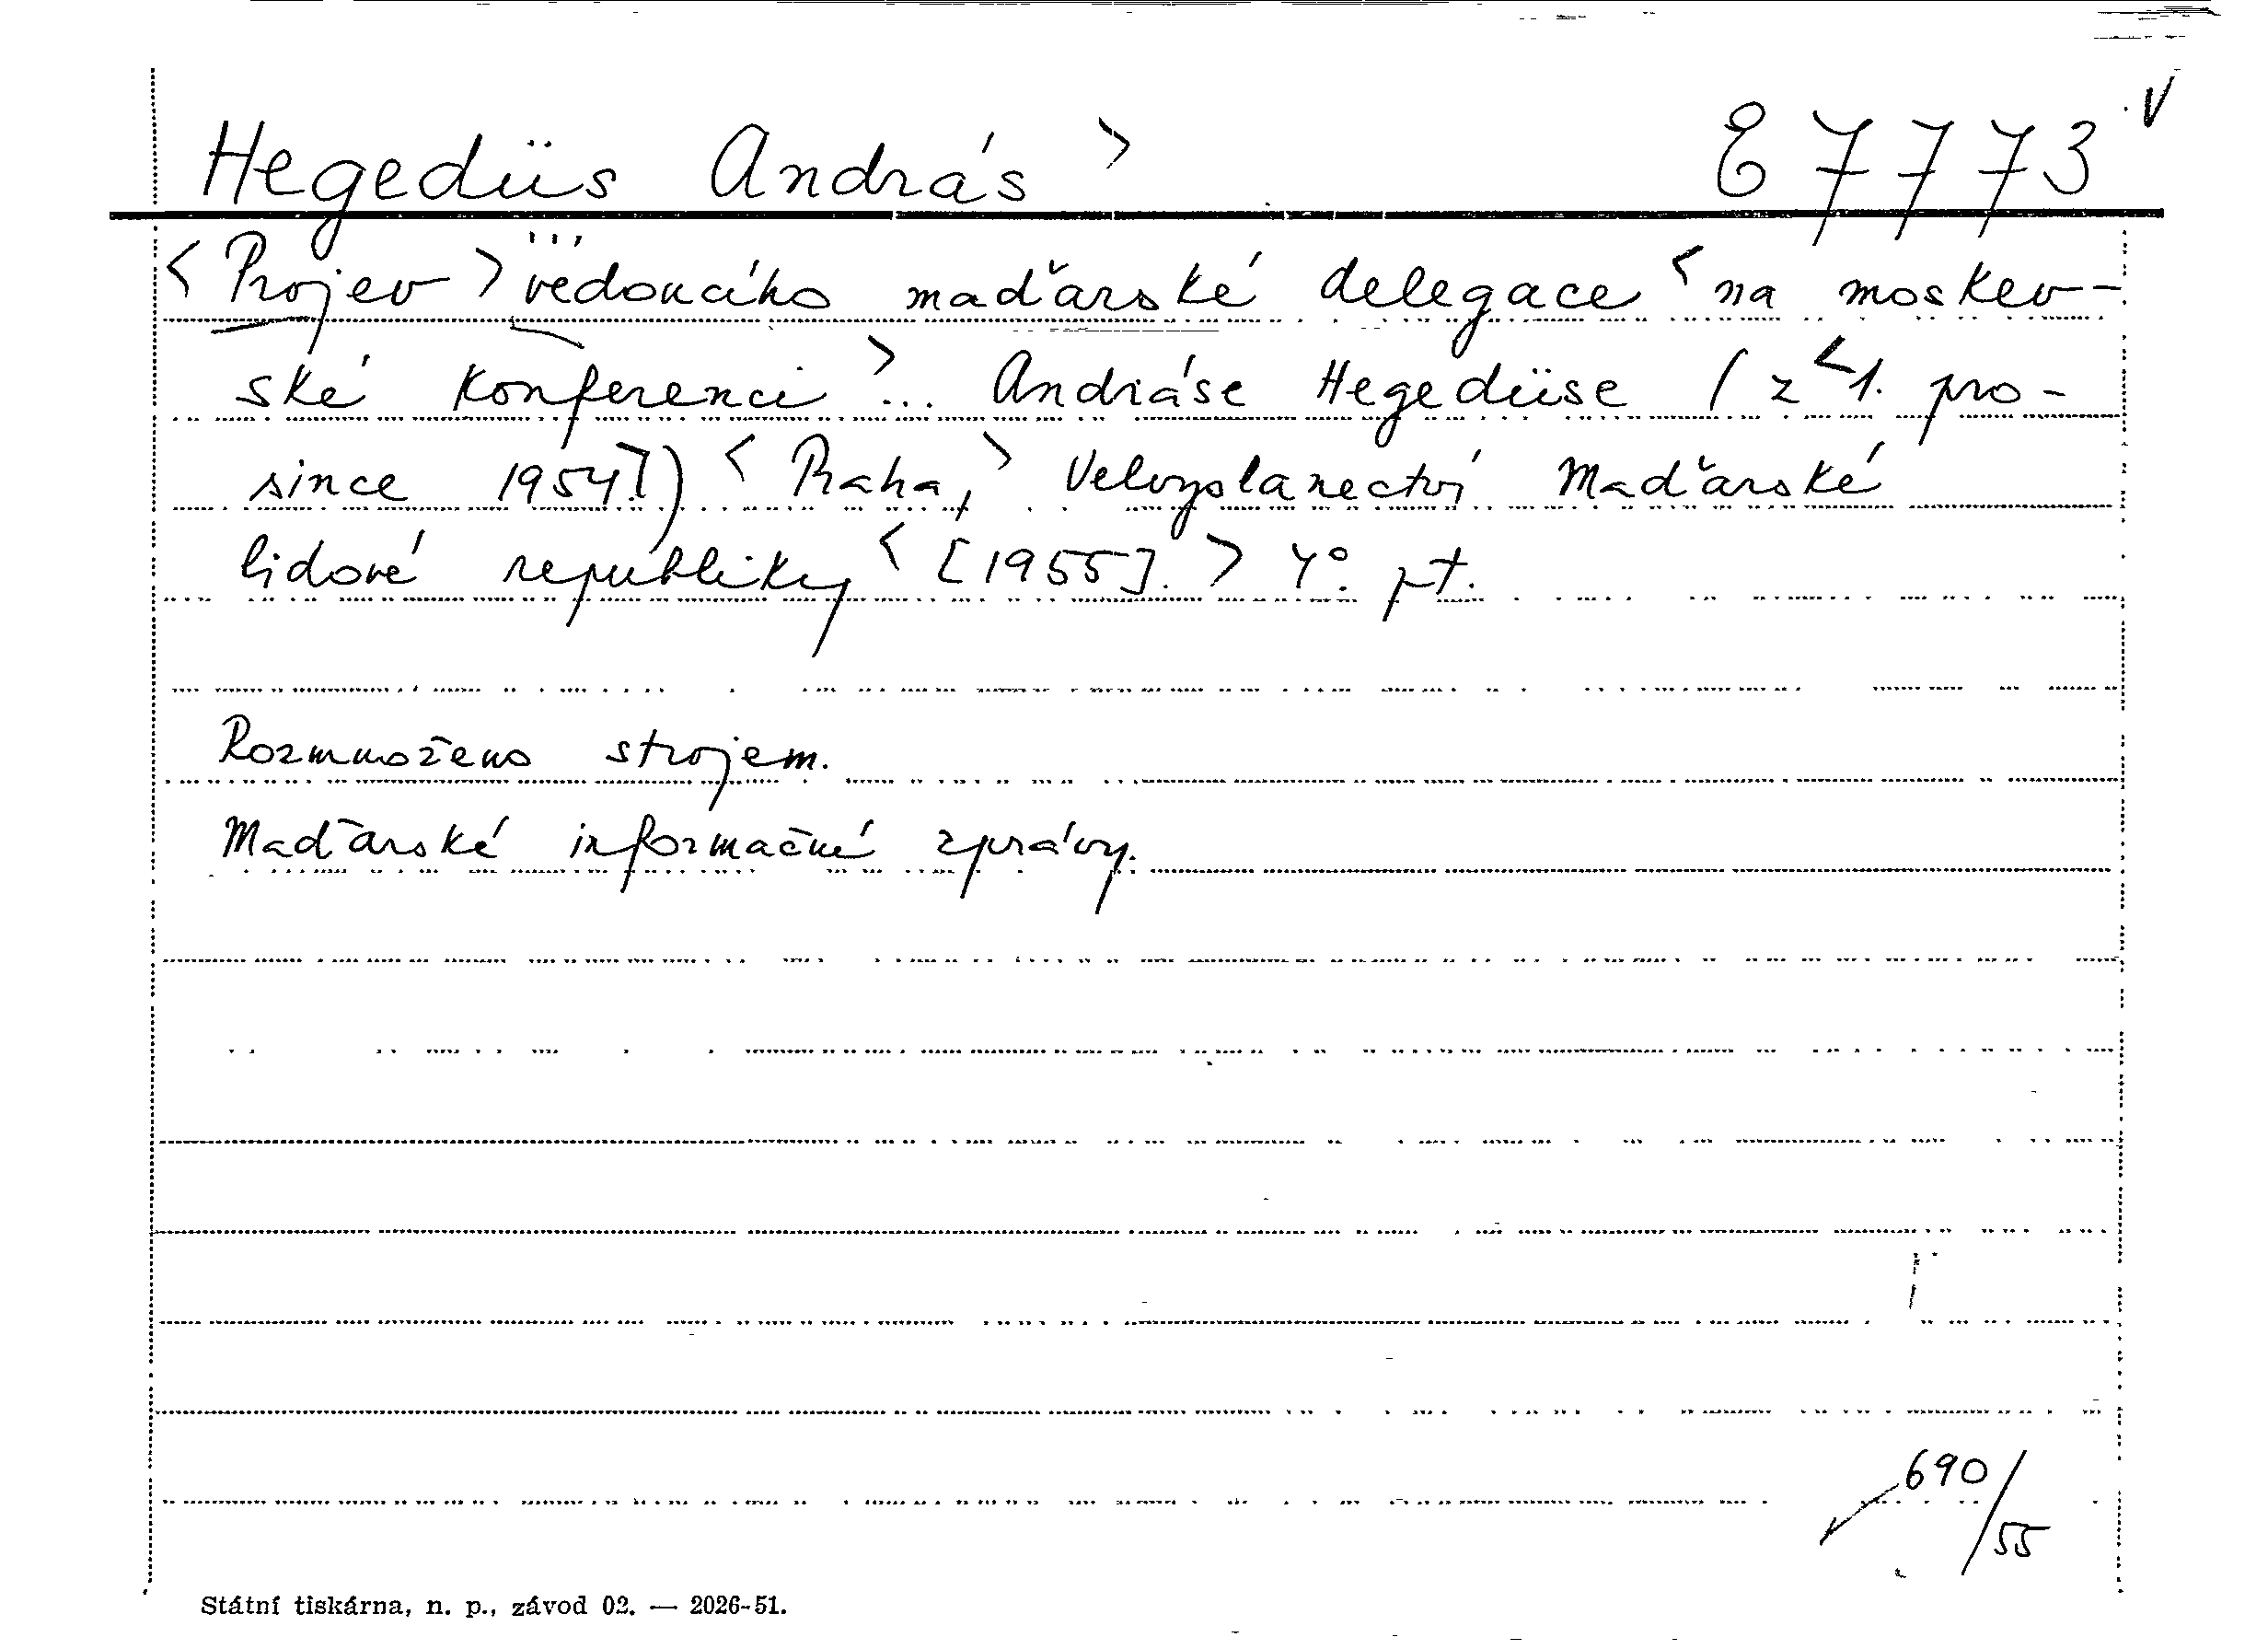 Hegedüs András > E 7773 v
< Projev > ... vedoucího maďarské delegace < na moskev-
ské konferenci > ... Andráse Hegedüse ( z < 1. pro-
since 1954.]) < Praha, > Velvyslanectví Maďarské
lidové republiky < [1955]. > 4°. pt.
Rozmnoženo strojem.
Maďarské informačné zprávy.
690/55
Státní tiskárna, n. p., závod 02. — 2026-51.